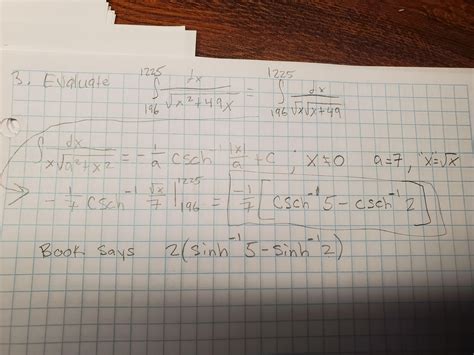 3. Evaluate ∫_{196}^{1225} dx/√(x²+49x) = ∫_{196}^{1225} dx/(√x√(x+49))
∫ dx/(x√(a²+x²)) = -1/a csch⁻¹ |x|/a + C ; x≠0 a=7, "x"=√x
-1/7 csch⁻¹ √x/7 |_{196}^{1225} = -1/7 [csch⁻¹ 5 - csch⁻¹ 2]
Book says 2(sinh⁻¹ 5 - sinh⁻¹ 2)